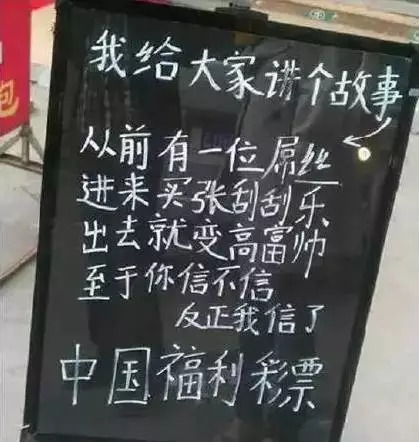 我给大家讲个故事
从前有一位屌丝
进来买张刮刮乐
出去就变高富帅
至于你信不信
反正我信了
中国福利彩票